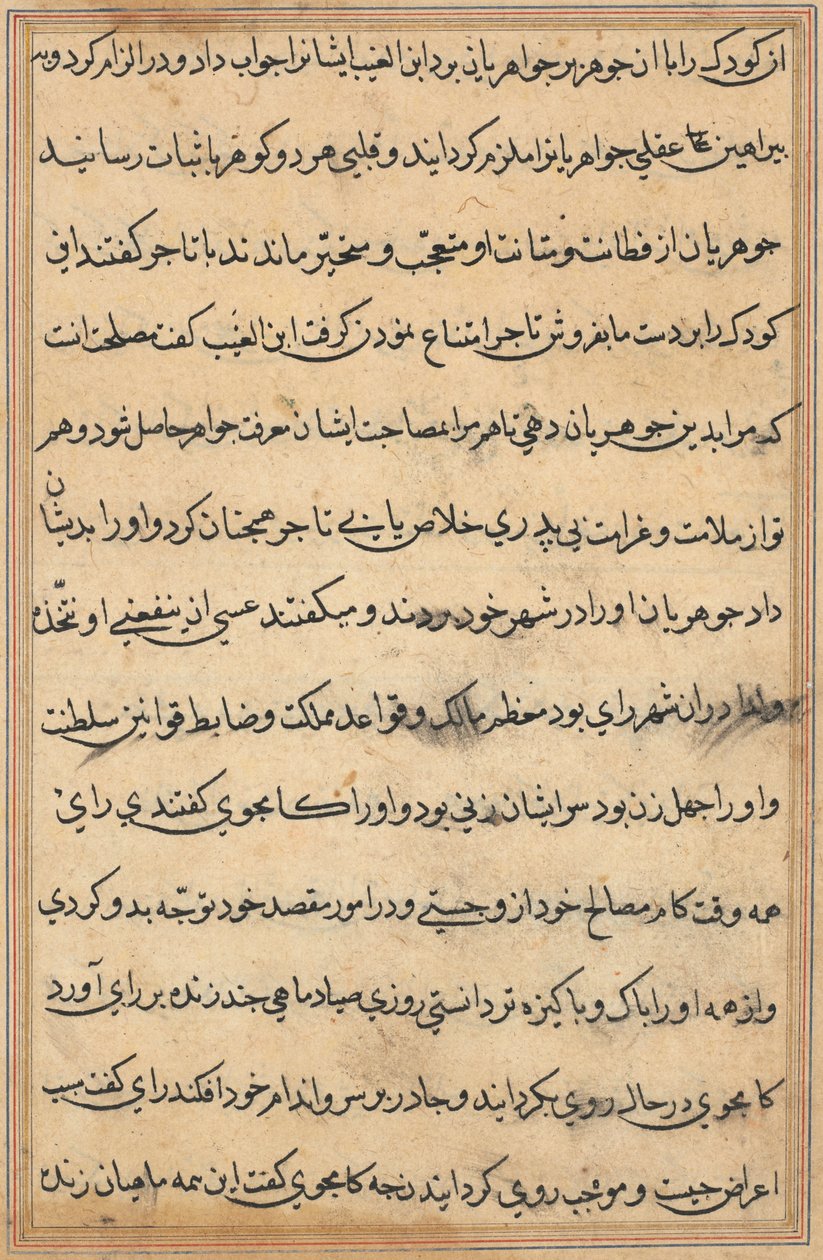 ان کودک را با ان جوهر بر جواهریان بود ابن الغیب ایشانرا جواب داد و در الزام کرد و به
براهین عقلی جواهریانرا ملزم کردایند و قلبی هر دو کوهر باثبات رسانید
جوهریان از فطانت و متانت او متعجّب و متحیّر ماندند با تاجر کفتند این
کودک را بر دست ما بفروش تاجر امتناع نمودن کرفت ابن الغیَب کفت مصلحت انت
که مرا بدین جوهریان دهی تا هم مرا بمصاحبت ایشان معرفت جواهر حاصل شود و هم
تو از ملامت و غرامت بی پدری خلاص یابی تاجر همجنان کرد و او را بدیشان
داد جوهریان او را در شهر خود بردند و میکفتند عسی ان ینفعنی او نتّخذه
ولدا دران شهر رای بود معظم مالک و قواعد مملکت و ضابط قوانین سلطنت
و او را جهل زن بود سر ایشان زنی بود و او را کامجوی کفتندی رای
همه وقت کام مصالح خود ازو جستی و در امور مقصد خود توّجه بدو کردی
و از همه او را باک و باکیزه تر دانستی روزی صیاد ماهی جند زنده بر رای آورد
کامجوی در حال روی بکردایند و جادر بر سر و اندام خود افکند رای کفت سبب
اعراض جیست و موجب روی کردایند نجه کامجوی کفت این همه ماهیان زنده